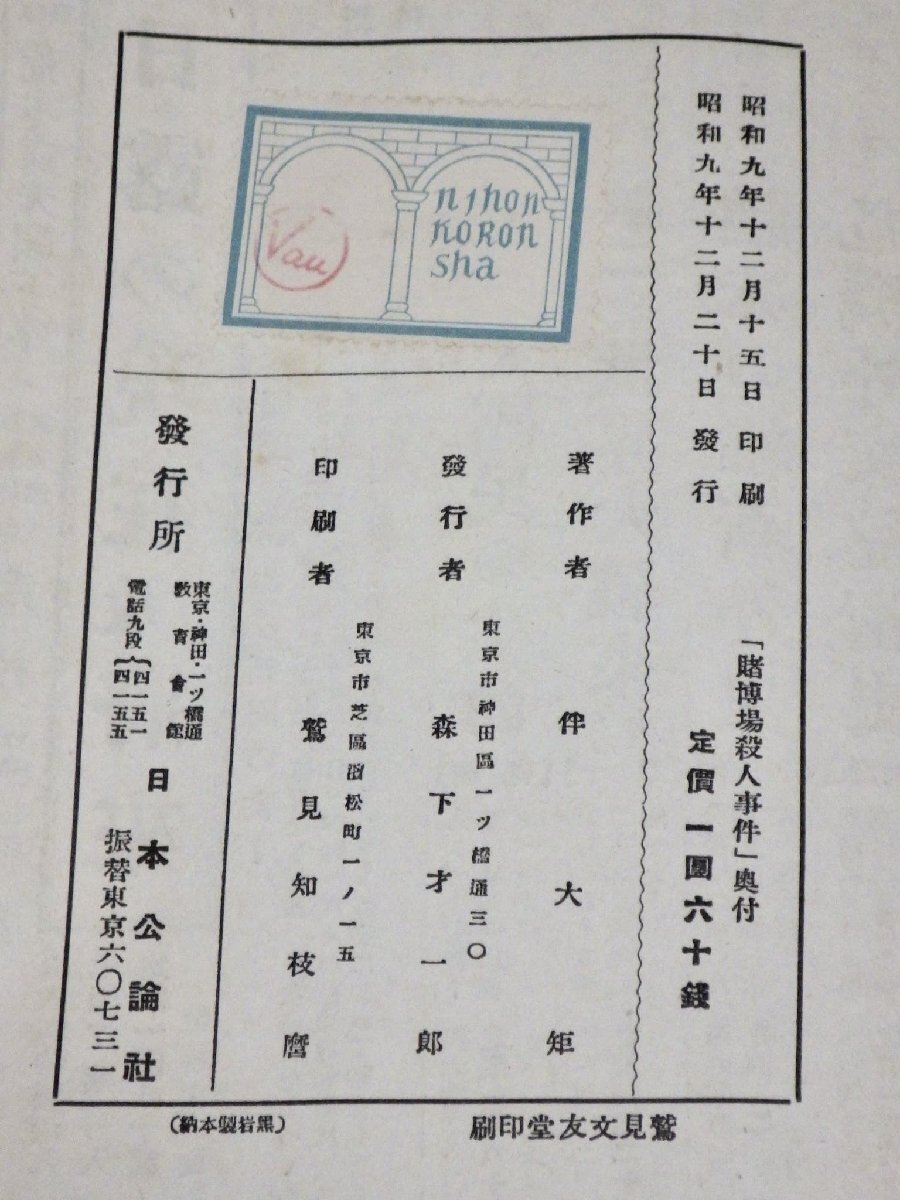 昭和九年十二月十五日 印刷
昭和九年十二月二十日 發行
「賭博場殺人事件」奥付
定價一圓六十錢
nihon
KORON
sha
Vau
著作者 伴大矩
東京市神田區一ツ橋通三〇
發行者 森下才一郎
東京市芝區濱松町一ノ一五
印刷者 鷲見知枝麿
發行所
東京・神田・一ツ橋通
敎育會館
電話九段{四一五一
四一五五
日本公論社
振替東京六〇七三一
鷲見文友堂印刷
(黒岩製本納)